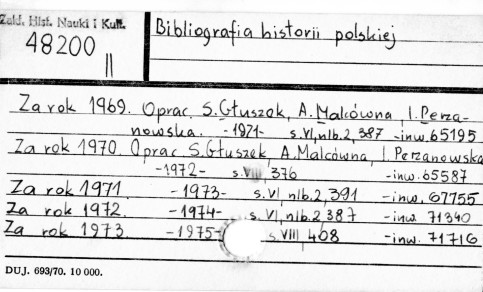 Zakł. Hist. Nauki i Kult.
48200
II
Bibliografia historii polskiej
Za rok 1969. Oprac. S. Głuszek, A. Malcówna, I. Perza-
nowska. -1971- s. VI, nlb. 2, 387 -inw. 65195
Za rok 1970. Oprac. S. Głuszek, A. Malcówna, I. Perzanowska
-1972- s. VIII, 376 -inw. 65587
Za rok 1971. -1973- s. VI, nlb. 2, 391 -inw. 67755
Za rok 1972. -1974- s. VI, nlb. 2 387 -inw. 71340
Za rok 1973. -1975- s. VIII, 408 -inw. 71716
DUJ. 693/70. 10 000.